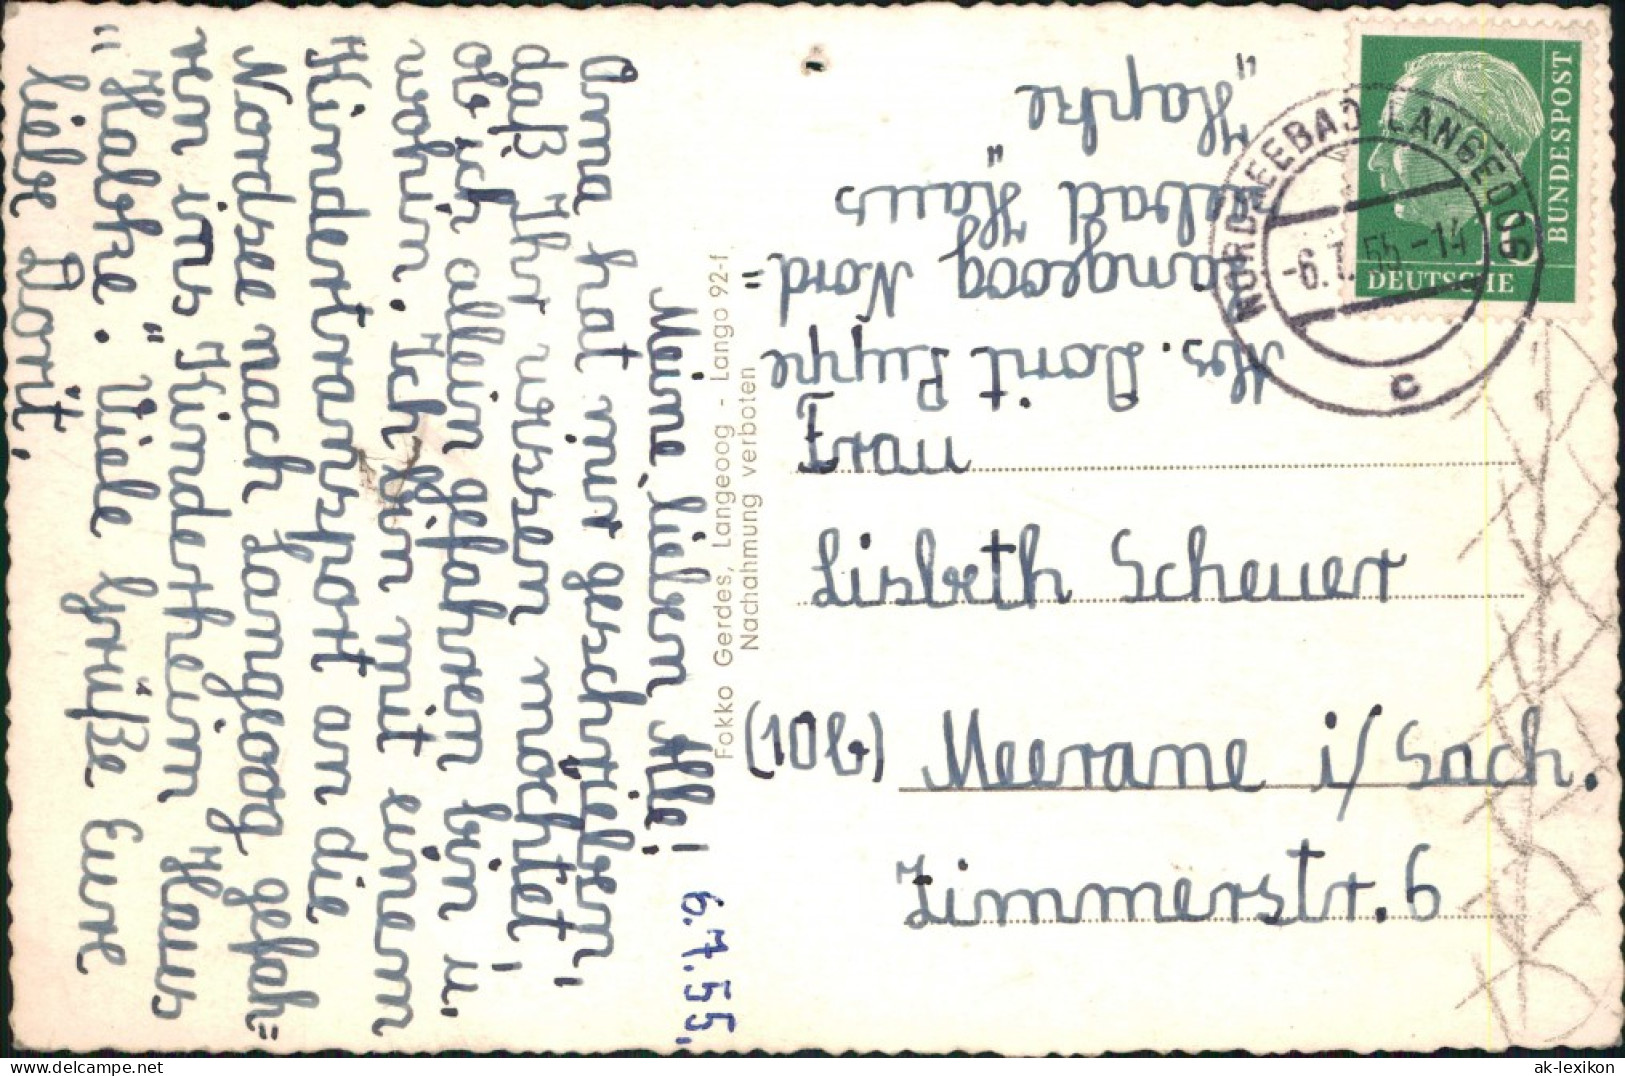 Meine lieben Alle!
6.7.55.
Oma hat mir geschrieben,
daß Ihr wissen möchtet,
ob ich allein gefahren bin u.
wohin. Ich bin mit einem
Kindertransport an die
Nordsee nach Langeoog gefah=
ren ins Kinderheim "Haus
"Habke." Viele Grüße Eure
liebe Dorit.
Fokko Gerdes, Langeoog - Lango 92-f
Nachahmung verboten
Abs. Dorit Puppe
Langeoog Nord=
seebad "Haus
Hapke"
NORDSEEBAD LANGEOOG
-6.7.55-14
c
10
DEUTSCHE
BUNDESPOST
Frau
Lisbeth Scheuer
(10b) Meerane i/Sach.
Zimmerstr. 6
ak-lexikon